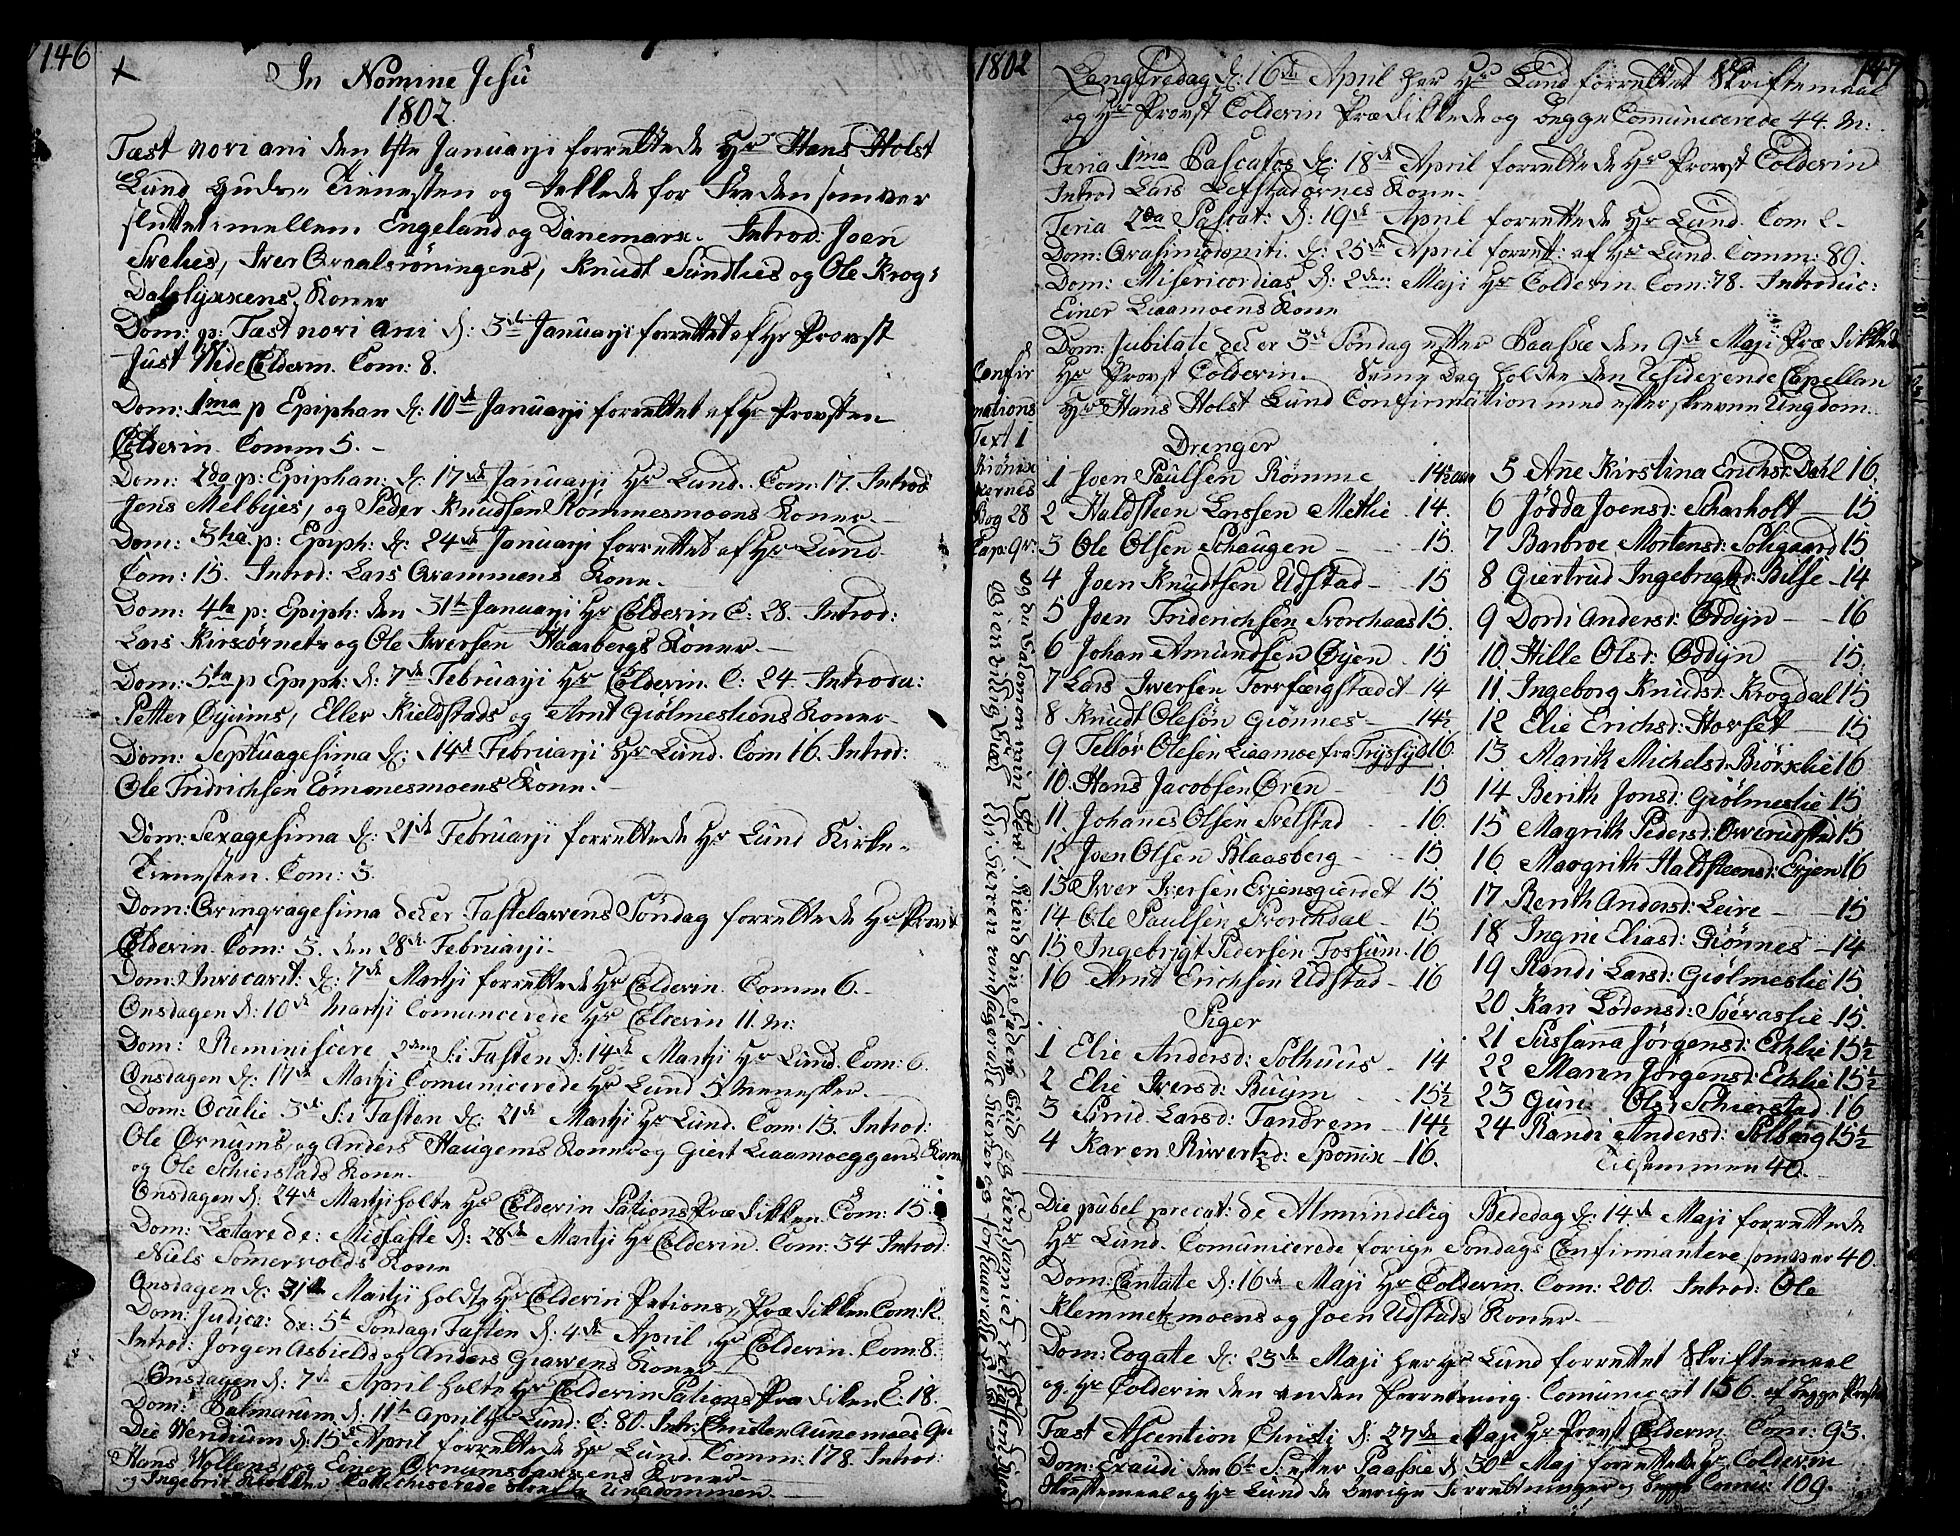 146
In Nomine Jesu
1802
Fæst novi ani den 1ste Januarji forrettede Hr Hans Holst
Lund Guds Tienesten og takkede for Freden som var
sluttet imellem Engeland og Danemark. Introd: Joen
Svelies, Iver Qvaalsröningens, Knudt Sundlies og Ole Krog-
dalslyxxens Koner
Dom: p: Fæst novi ani d: 3de Januarji forrettet af Hr Provst
Just Wide Colderin. Com: 8.
Dom: 1ma p Epiphan d: 10de Januarji forrettet af Hr Provsten
Colderin. Comm 5.
Dom: 2da p: Epiphan: d: 17de Januarji Hr Lund. Com: 17. Introd
Jens Melbyes, og Peder Knudsen Rommesmoens Koner.
Dom: 3tia p: Epiph: d: 24de Januarji forrettet af Hr Lund
Com: 15. Introd: Lars Qvammens Kone.
Dom: 4ta p: Epiph: den 31te Januarji Hr Colderin C: 28. Introd:
Lars og Ole Iversen Haarbergs Koner.
Dom: 5ta p Epiph: d: 7de Februarji Hr Colderin. C: 24. Introdu:
Petter Öyums, Eller Kieldstads og Arnt Giölmesliens Koner
Dom: Septuagesima d: 14de Februarji Hr Lund. Com 16. Introd:
Ole Fridrichsen Tömmesmoens Kone.
Dom: Sexagesima d: 21de Februarji forrettede Hr Lund Kirke-
Tienesten. Com: 3.
Dom: Qvinqvagesima det er Fastelavens Söndag forrettede Hr Provst
Colderin. Com: 3. den 28de Februarji.
Dom: Invocavit: d: 7de Martji forrettede Hr Colderin. Comm 6.
Onsdagen d: 10de Martji Comunicerede Hr Colderin 11. M:
Dom: Reminiscere 2den S: i Fasten d: 14de Martji Hr Lund. Com: 6.
Onsdagen d: 17de Martji Comunicerede Hr Lund 5 Mennesker.
Dom: Oculie 3de S: i Fasten d: 21de Martji Hr Lund. Com: 13. Introd:
Ole Örnums, og Anders Haugens Koner og Giert Liaamoeggens Kone
og Ole Schierstads Kone.
Onsdagen d: 24de Martji holte Hr Colderin Pations Prædikken. Com: 15.
Dom: Lætare de: Midfaste d: 28de Martji Hr Colderin. Com: 34 Introd:
Niels Somervolds Kone
Onsdagen d: 31te Martji holdte Hr Colderin Pations Prædikken Com: 12.
Dom: Judica: de: 5te Söndag i Fasten d: 4de April Hr Colderin. Com: 8.
Introd: Jörgen Asbiels og Anders Grawens Koner
Onsdagen d: 7de April holte Hr Colderin Pations Prædiken C: 18.
Dom: Palmarum d: 11te April Hr Lund: C: 80. Intr: Christen Aunemoes
Die Viridium d: 15de April forrettede Hr Lund. Comm: 178. Introd:
Hans Wollens, og Einer Örnumsbaxxens Koner
og Ingebrit Catechiserede Ungdommen.
1802
147
Langfredag d: 16de April her Hr Lund forrettet Skriftemaal
og Hr Provst Colderin Prædikkede og begge Comunicerede 44. M:
Feria 1ma Pascatos d: 18de April forrettede Hr Provst Colderin
Introd Lars Lefstadörnes Kone.
Feria 2da Pascat: d: 19de April forrettede Hr Lund. Com 2
Dom: Qvasimodoniti. d: 25de April forrett: af Hr Lund. Comm: 89.
Dom: Misericordias d: 2den Maji Hr Colderin. Com: 78. Introduc:
Einer Liaamoens Kone
Dom: Jubilate det er 3de Söndag efter Paaske den 9de Maji Prædikkede
Hr Provst Colderin. Samme Dag holdte den Residerende Capellan
Hr Hans Holst Lund Confirmation med efterskrevne Ungdom.
Confir
mations
Text 1
Krönike
kernes
Bog 28
Cap: 9 v:
og du Salomon min Sön! Kiend din Faders Gud og tien ham med retskaffen Hierte
og en villig Siæl thi Herren randsager alle Hierter og forstaaer alle
Drenger
1 Joen Paulsen Römme 14½ aar
2 Haldsteen Larssen Metlie 14.
3 Ole Olsen Schaugen 15.
4 Joen Knudtsen Udstad 15
5 Joen Friderichsen Svorchaas 15.
6 Johan Amundsen Öyen 15
7 Lars Iversen Torsfærgstædet 14
8 Knudt Olesön Giönnes 14½
9 Tellör Olesen Liaamoe fra Trysfyld 16.
10. Hans Jacobsen Ören 15
11. Johanes Olsen Svelstad 16.
12 Joen Olsen Blaasberg 15
13 Iver Iversen Evjensgierdet 15
14 Ole Paulsen Svorchdal 15
15 Ingebrigt Pedersen Fossum 16
16 Arnt Erichsen Udstad 16
Piger
1 Elie Andersd: Solhuus 14
2 Elie Iversd: Buum 15½
3 Sirid Larsd: Tandrem 14½
4 Karen Siwertsd: Sponix 16.
5 Ane Kirstina Erichsd: Dahl 16.
6 Jödda Joensd: Scharholt 15
7 Barbroe Mortensd: Soligaard 15
8 Giertrud Ingebrigtsd: Bilse 14
9 Dordi Andersd: Oddyn 16
10. Hille Olsd: Oddyn 15.
11. Ingeborg Knudsd: Krogdal 15
12 Elie Erichsd: Horset 15
13 Marik Michelsd: Biörxlie 16
14 Berith Jonsd: Giölmeslie 15
15 Magrith Pedersd: Owerudstei 15
16 Maogrith Haldsteensd: Evjen 16
17 Berith Andersd: Leire 15
18 Ingne Eliasd: Giönnes 14
19 Randi Larsd: Giölmeslie 15
20 Kari Lödensd: Söeraslie 15.
21 Sussana Jörgensd: Ethlie 15½
22 Maren Jörgensd: Ethlie 15½
23 Guru Olsd: Schierstad 16
24 Randi Andersd: Solberg 15½
Tilsammen 40.
Die pubel precat: de Almindelig Bededag d: 14de Maji forrettede
Hr Lund. Comunicerede forige Söndags Confirmantere som var 40.
Dom: Cantate d: 16de Maji Hr Colderin. Com: 200. Introd: Ole
Klemmetsmoens og Joen Udstads Koner.
Dom: Rogate d: 23de Maji her Hr Lund forrettet Skriftemaal
og Hr Colderin den anden forretning. Comunicert 156. af begge Præster
Fæst Ascention Christi d: 27de Maji Hr Provst Colderin Com: 93.
Dom: Exaudi den 6te S: efter Paaske d: 30te Maj forrettede Hr Colderin
Skriftemaal og Hr Lund de övrige Forretninger og begge Comu: 109.